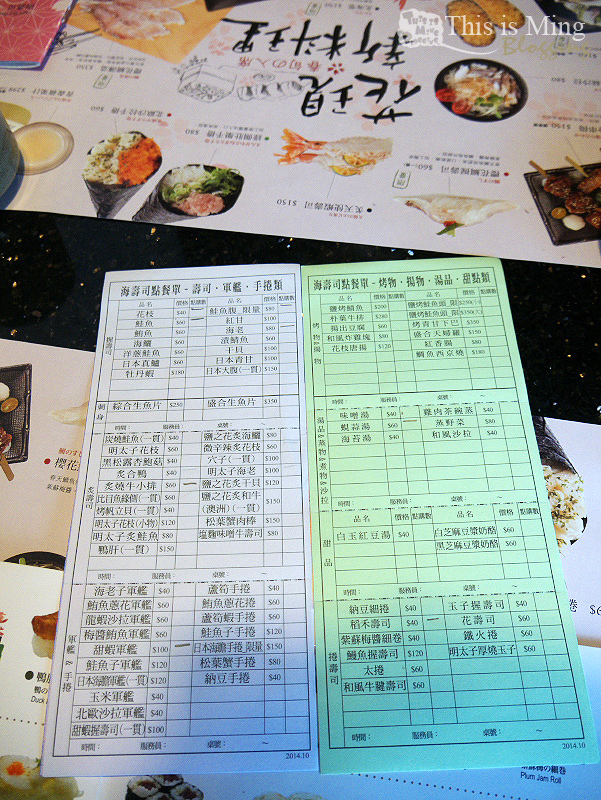 This is Ming
Blog
花現
新料理
春旬の入席
$60
$80
$150
$150
炙天使蝦壽司
海壽司點餐單-壽司·軍艦·手捲類
品名 價格 點購數 品名 價格 點購數
握壽司
花枝 $40 鮭魚腹 限量 $80
鮭魚 $60 紅甘 $100
鮪魚 $60 海老 $80
海鱺 $60 漬鯖魚 $60
洋蔥鮭魚 $60 干貝 $120
日本真鱸 $60 日本青甘 $100
牡丹蝦 $180 日本大腹(一貫) $150
刺身
綜合生魚片 $250 盛合生魚片 $350
時間: 服務員: 桌號: ~
炙壽司
炭燒鮭魚(一貫) $40 鹽之花炙海鱺 $80
明太子花枝 $60 微辛辣炙花枝 $60
黑松露杏鮑菇 $40 穴子(一貫) $100
炙合鴨 $40 明太子海老 $100
炙燒牛小排 $60 鹽之花炙干貝 $120
比目魚緣側(一貫) $60 鹽之花炙和牛
烤帆立貝(一貫) $40 (澳洲)(一貫) $150
明太子花枝(小物) $120 松葉蟹肉棒 $150
明太子炙鮭魚 $80 塩麴味噌牛壽司 $80
鴨肝(一貫) $150
時間: 服務員: 桌號: ~
軍艦 & 手捲
海老子軍艦 $40 蘆筍手捲 $40
鮪魚蔥花軍艦 $60 鮪魚蔥花手捲 $60
龍蝦沙拉軍艦 $60 蘆筍蝦手捲 $60
梅醬鮪魚軍艦 $60 鮭魚子手捲 $120
甜蝦軍艦 $100 日本海膽手捲 限量 $150
鮭魚子軍艦 $120 松葉蟹手捲 $80
日本海膽軍艦(一貫) $120 納豆手捲 $40
玉米軍艦 $40
北歐沙拉軍艦 $40
甜蝦握壽司(一貫) $100
時間: 服務員: 桌號: ~
2014.10
海壽司點餐單-烤物·揚物·湯品·甜點類
品名 價格 點購數 品名 價格 點購數
烤物 & 揚物
鹽烤鯖魚 $200 鹽烤鮭魚頭 限 $250
朴葉牛排 $280 鹽烤鮭魚頭 限 $350
揚出豆腐 $60 烤青甘下巴 $350
和風炸雞塊 $80 盛合天婦羅 $150
花枝唐揚 $120 紅香腸 $80
鯛魚西京燒 $180
時間: 服務員: 桌號: ~
湯品 & 蒸物 & 煮物 & 沙拉
味噌湯 $40 雞肉茶碗蒸 $40
蜆蒜湯 $60 蒸野菜 $80
海苔湯 $40 和風沙拉 $40
時間: 服務員: 桌號: ~
甜品
品名 價格 點購數 品名 價格 點購數
白玉紅豆湯 $40 白芝麻豆漿奶酪 $60
黑芝麻豆漿奶酪 $60
時間: 服務員: 桌號: ~
捲壽司
納豆細捲 $40 玉子握壽司 $40
稻禾壽司 $40 花壽司 $60
紫蘇梅醬細卷 $40 鐵火捲 $60
鰻魚握壽司 $120 明太子厚燒玉子 $60
太捲 $60
和風牛韃壽司 $60
時間: 服務員: 桌號: ~
2014.10
Plum Jam Roll